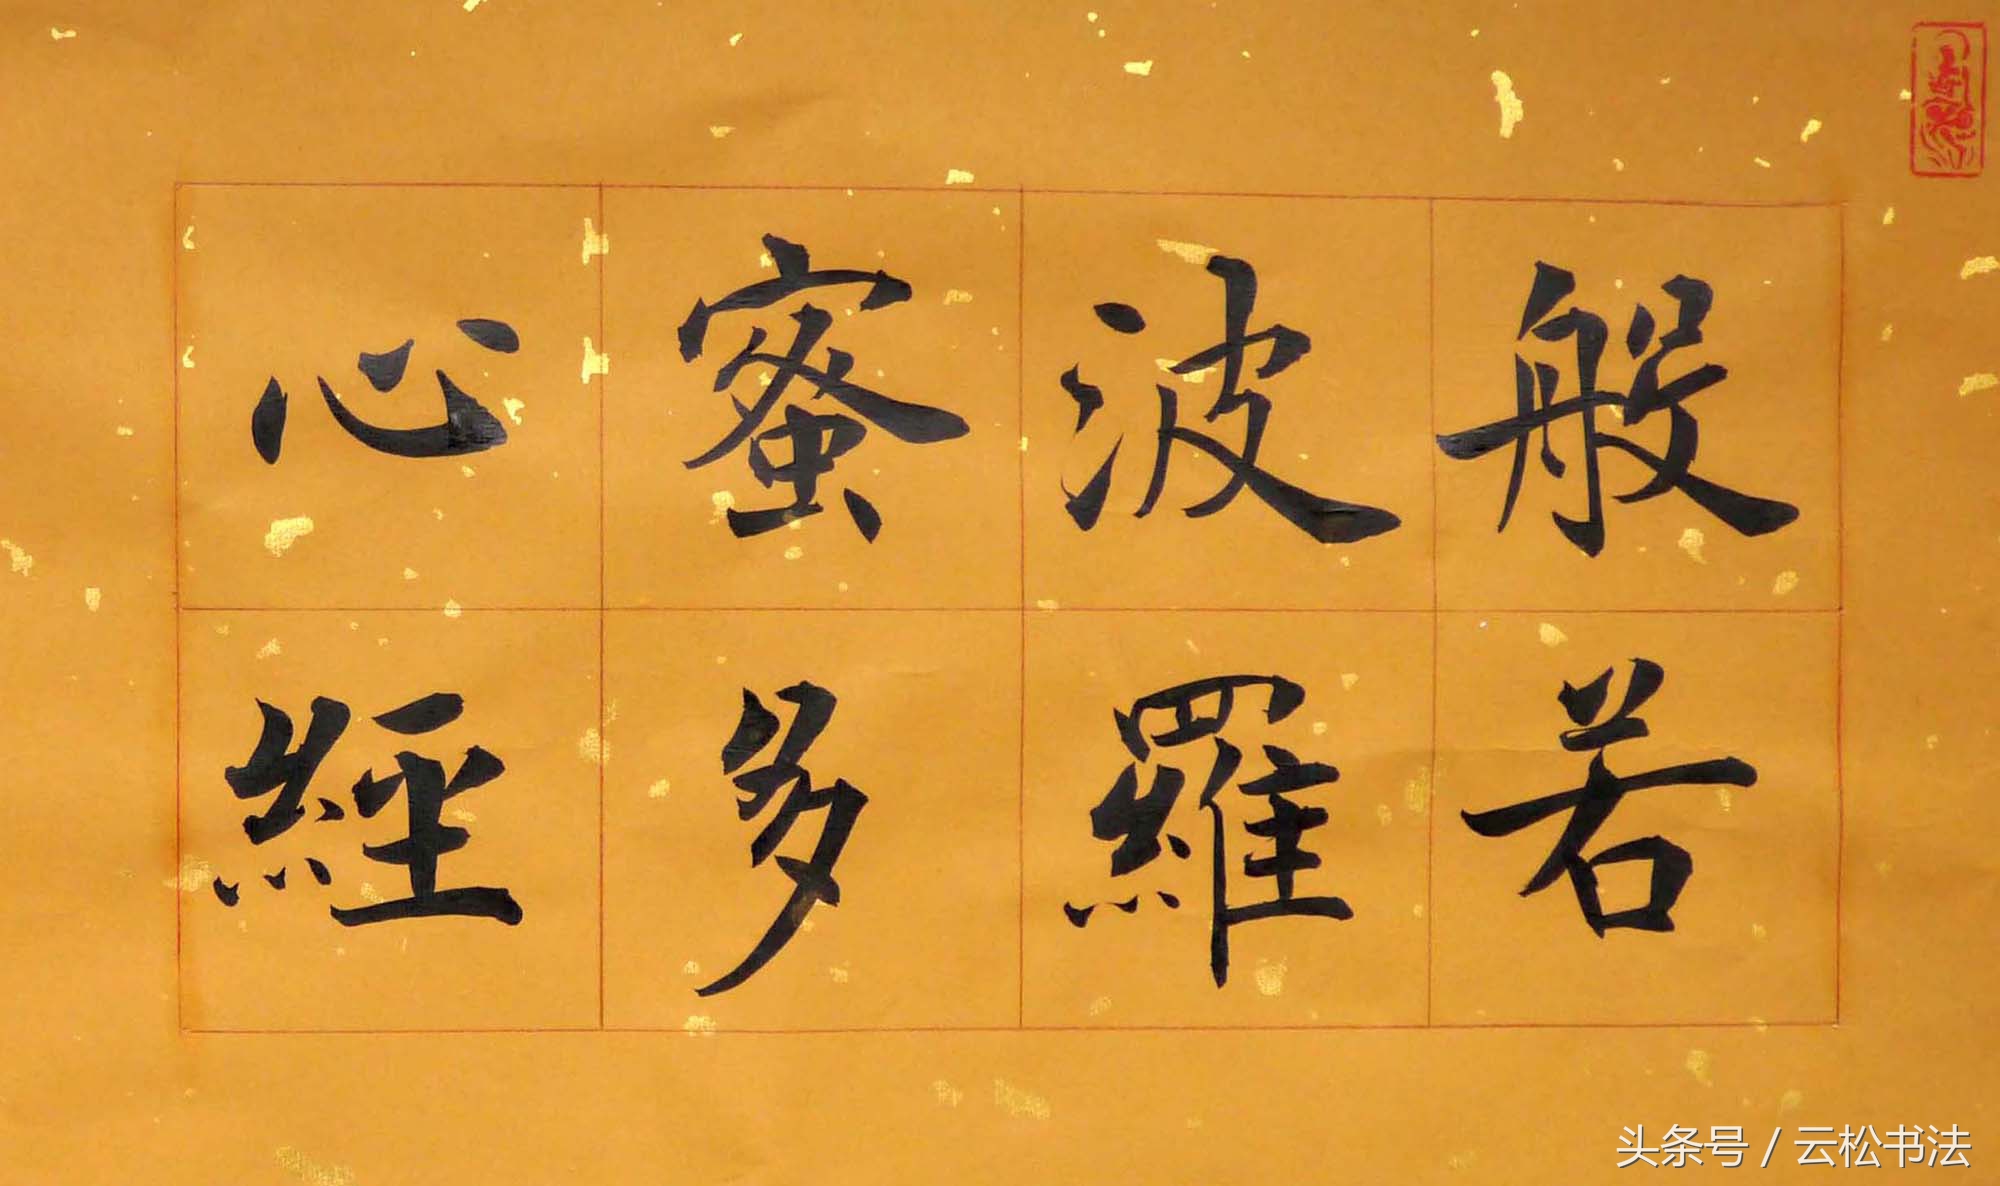 般若
波羅
蜜多
心經
头条号 / 云松书法